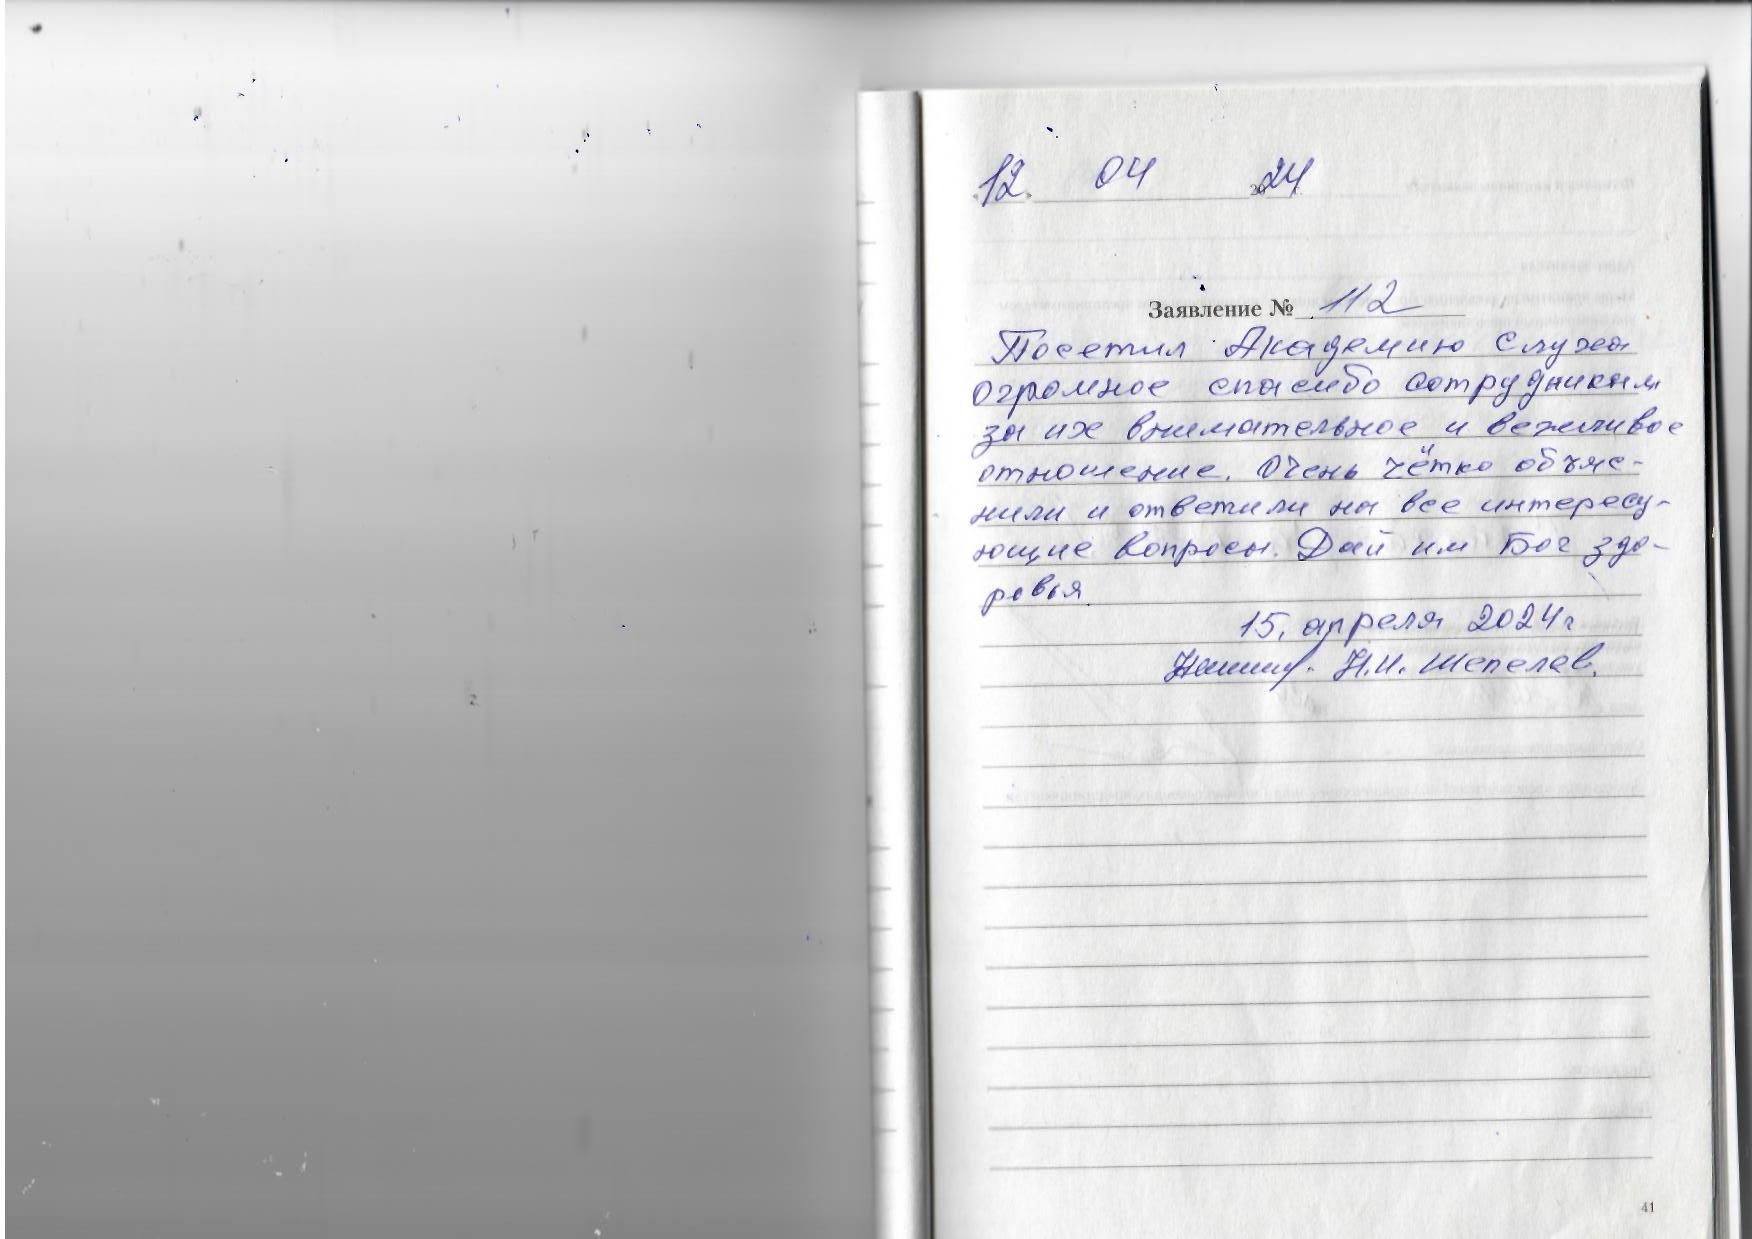 «12» 04 2024 г.
Заявление № 112
Посетил Академию Слуха
огромное спасибо сотрудникам
за их внимательное и вежливое
отношение. Очень чётко объяс-
нили и ответили на все интересу-
ющие вопросы. Дай им Бог здо-
ровья
15, апреля 2024г
Н.И. Шепелев.
41